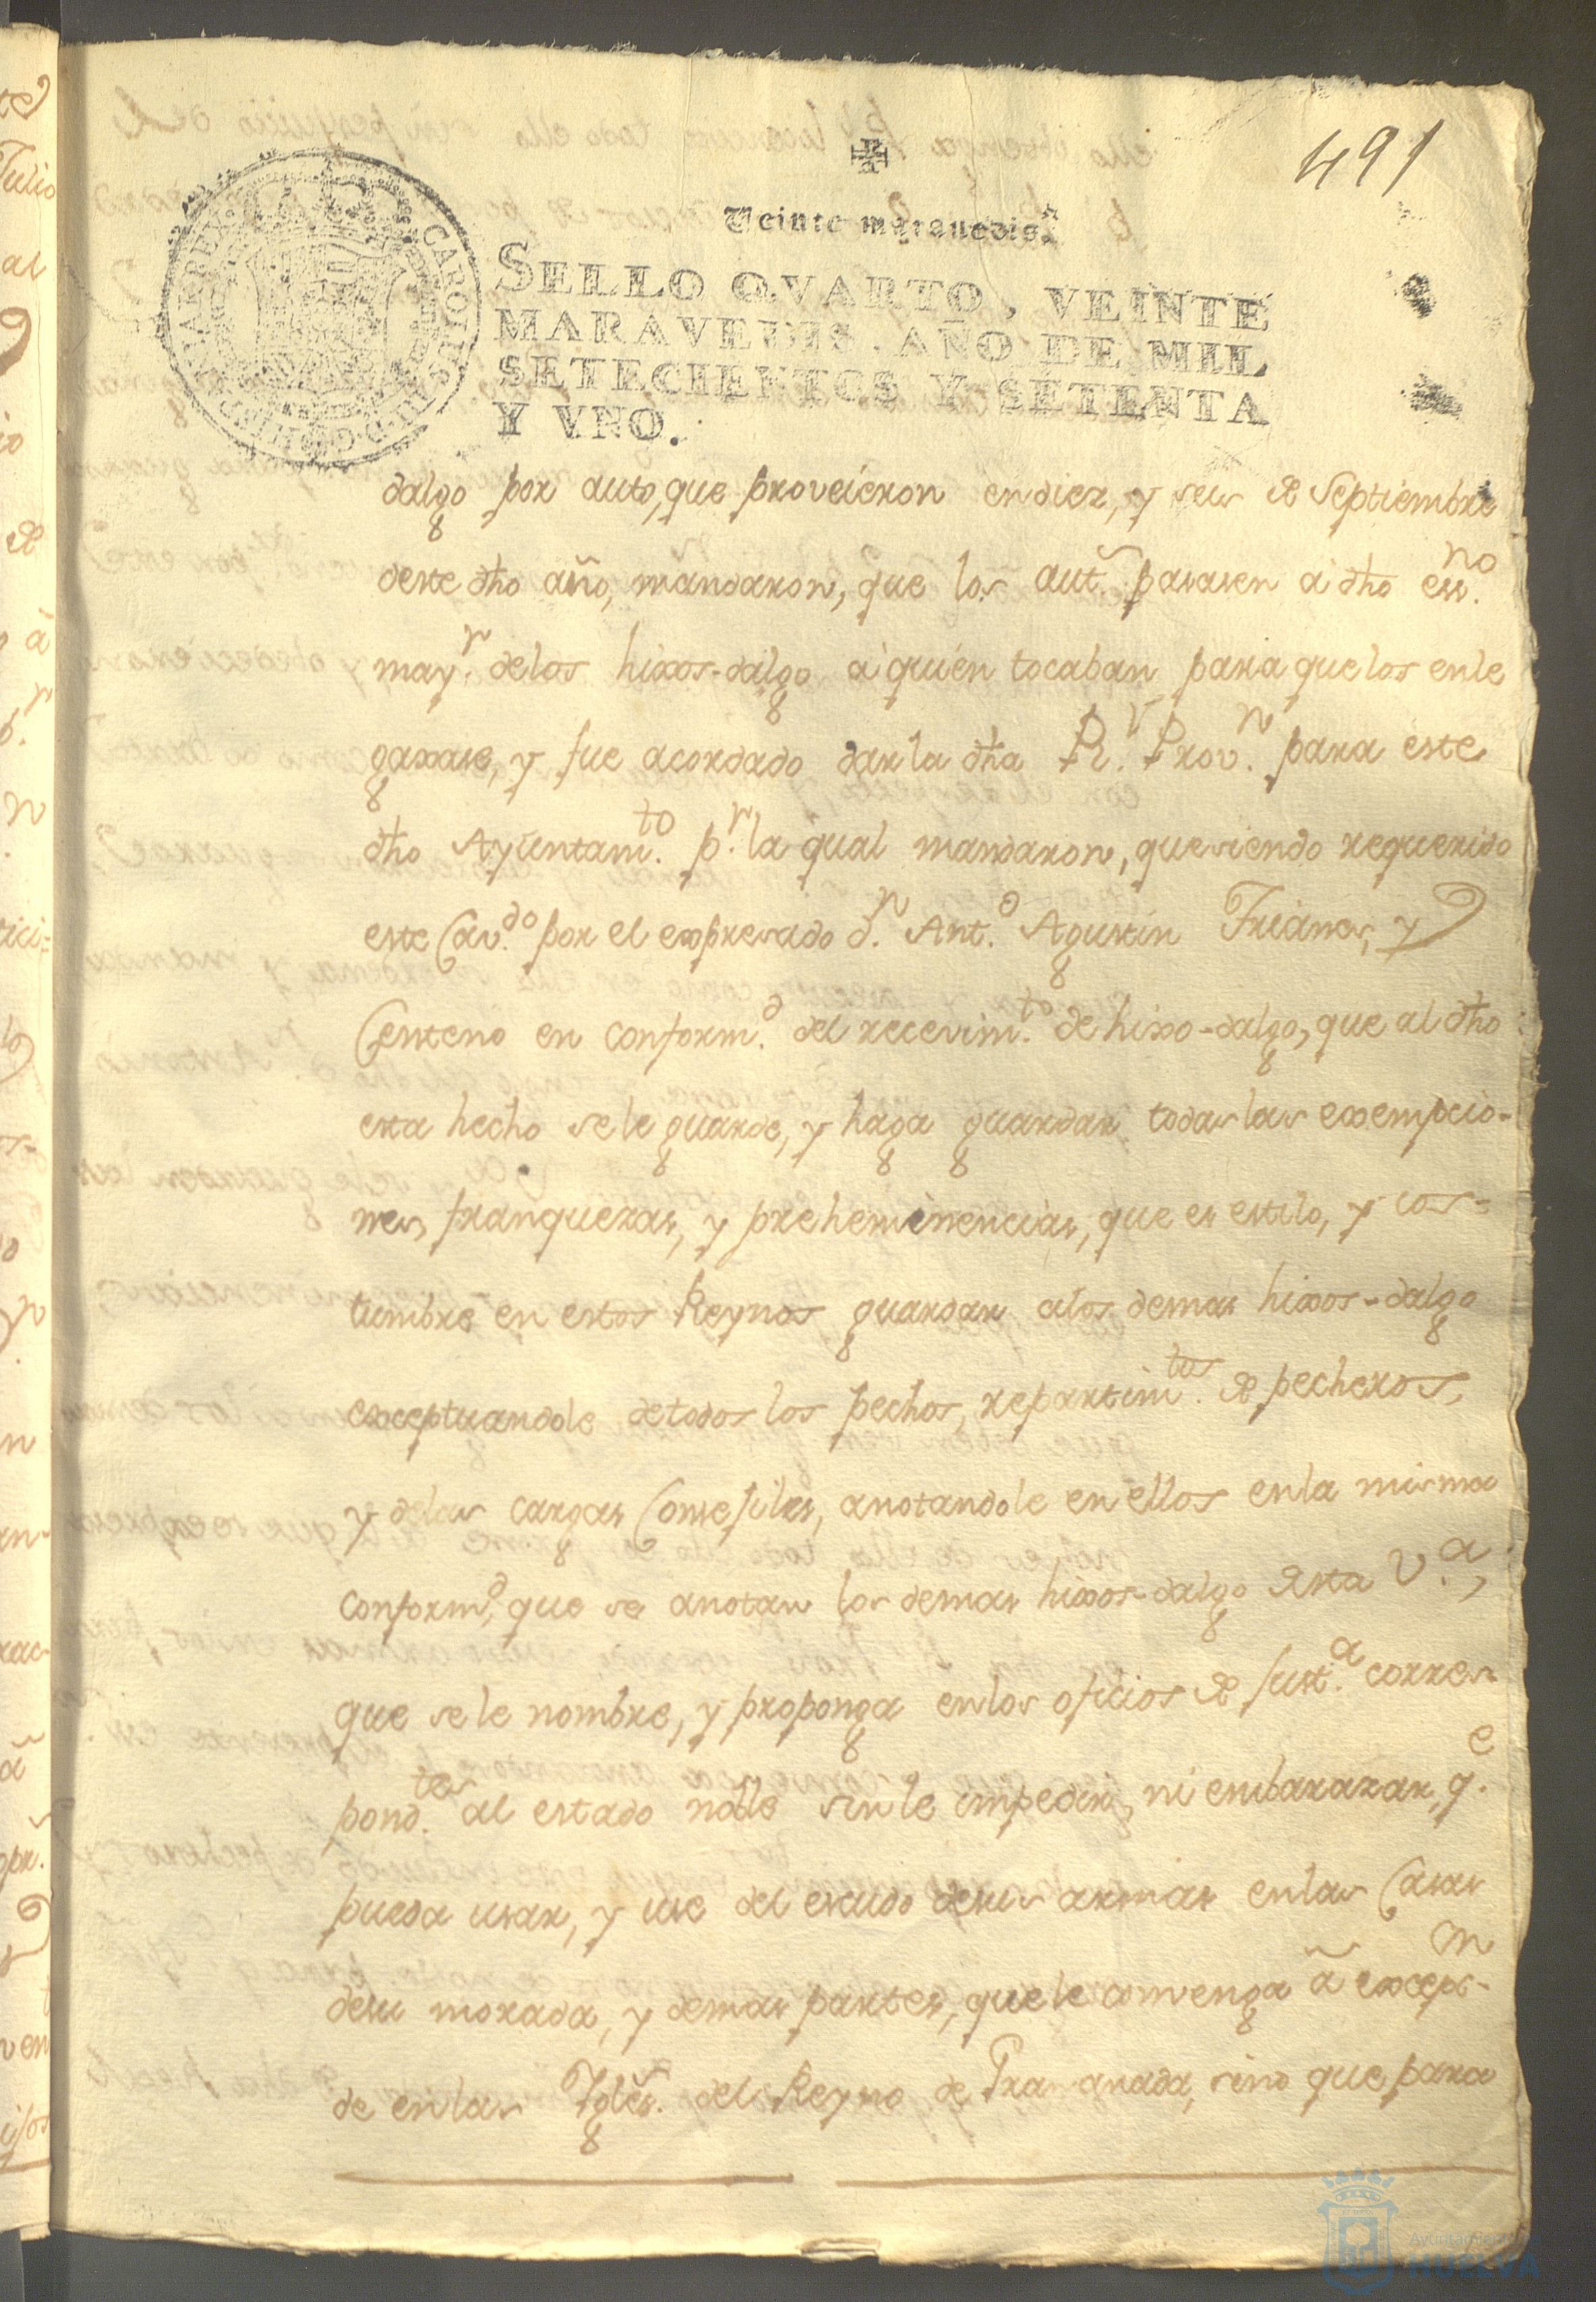 491
Veinte marauedis.
SELLO QVARTO, VEINTE
MARAVEDIS. AÑO DE MIL
SETECIENTOS Y SETENTA
Y VNO.
dalgo por auto, que proveieron en diez, y seis de Septiembre
deste dho año, mandaron, que los aut.s pasasen a dho ess.no
may.r de los hixos-dalgo a quien tocaban para que los enle
gaxase, y fue acordado dar la dha R.l Prov.n para este
dho Ayuntam.to p.r la qual mandaron, que siendo requerido
este Cav.do por el expresado d.n Ant.o Agustin Trianes, y
Centeno en conform.d del recevim.to de hixo-dalgo, que al dho
esta hecho se le guarde, y haga guardar todas las exempcio-
nes, franquezas, y preheminencias, que es estilo, y cos-
tumbre en estos Reynos guardar a los demas hixos-dalgo
exceptuandole de todos los pechos, repartim.tos de pecheros,
y de las cargas Consejiles, anotandole en ellos en la misma
conform.d, que se anotan los demas hixos-dalgo de esta V.a,
que se le nombre, y proponga en los oficios de Just.a corres-
pond.tes al estado noble sin le impedir, ni embarazar, q.e
pueda usar, y use del escudo de sus armas en las Casas
de su morada, y demas partes, que le convenga á excep.n
de en las Igles.s del Reyno de Granada, sino que para
Ayuntamiento
HUELVA